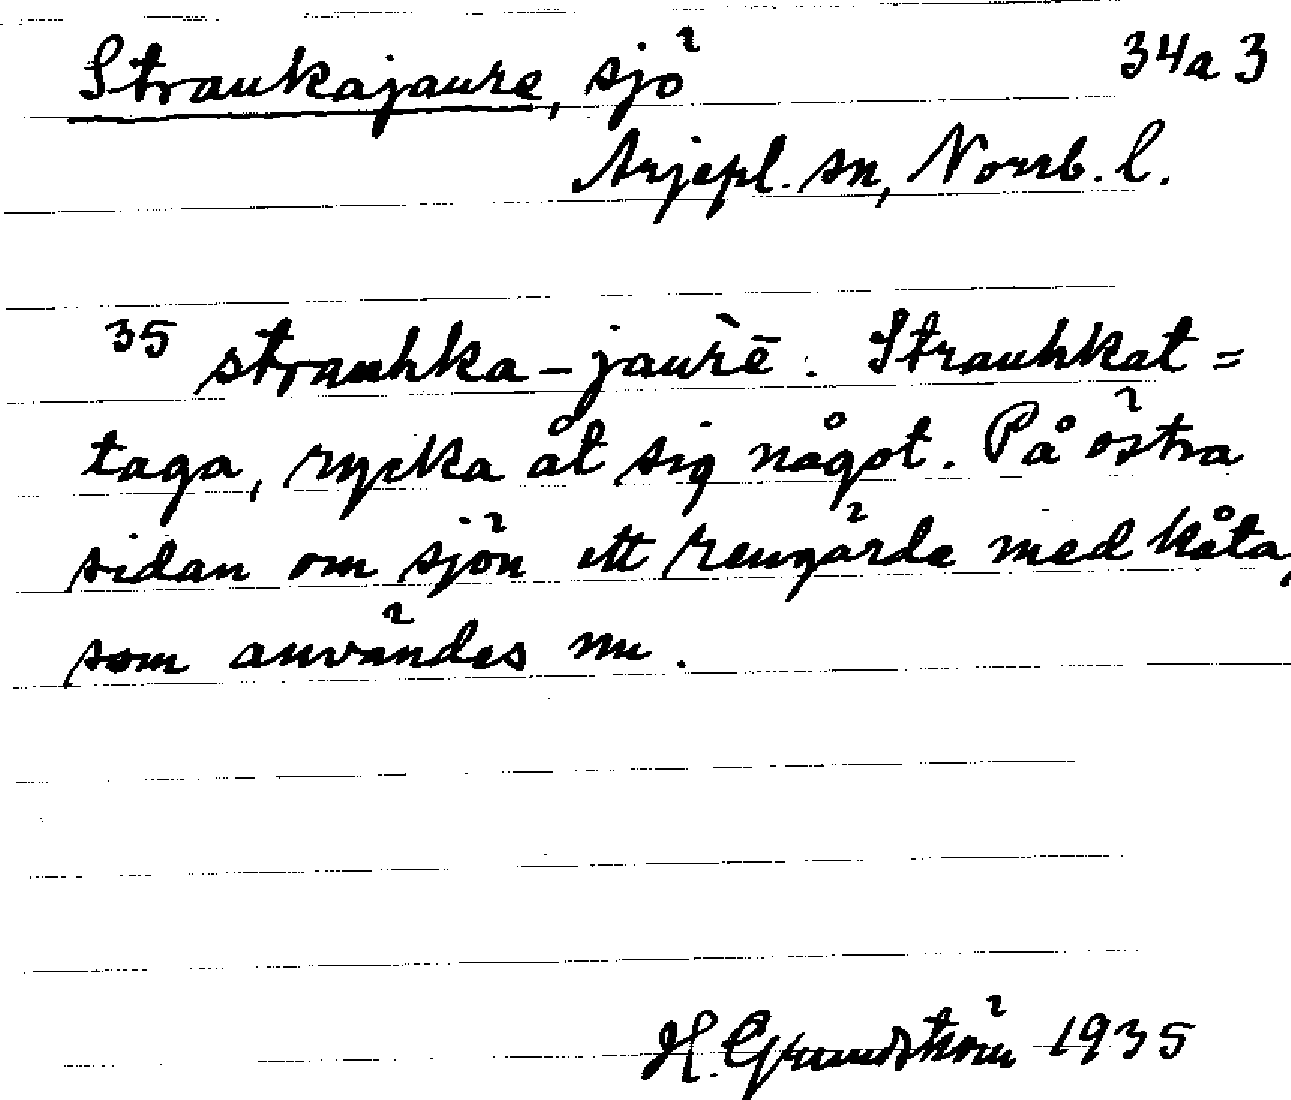 Straukajaure, sjö 34a3
Arjepl. sn, Norrb. l.
35 strauhka-jaurḕ. Strauhkat =
taga, rycka åt sig något. På östra
sidan om sjön ett rengärde med kåta,
som användes nu.
H. Grundström 1935